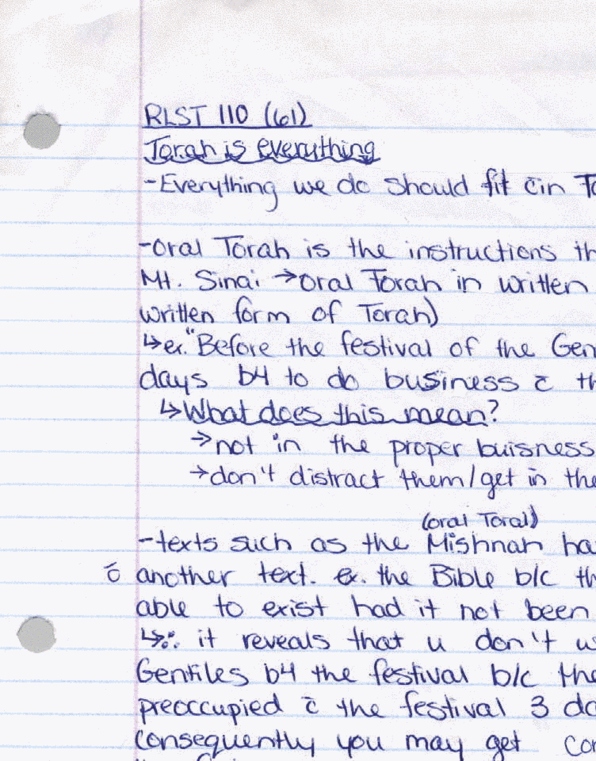 RLST 110 (61)
Torah is everything
-Everything we do should fit c̄in To
-oral Torah is the instructions th
Mt. Sinai →oral Torah in written
written form of Torah)
↳ex. "Before the festival of the Gen
days b4 to do business c̄ th
↳What does this mean?
→not in the proper buisness
→don't distract them/get in the
(oral Toral)
-texts such as the Mishnah ha
c̄ another text. ex. the Bible b/c th
able to exist had it not been
↳∴ it reveals that u don't us
Gentiles b4 the festival b/c the
preoccupied c̄ the festival 3 da
consequently you may get con